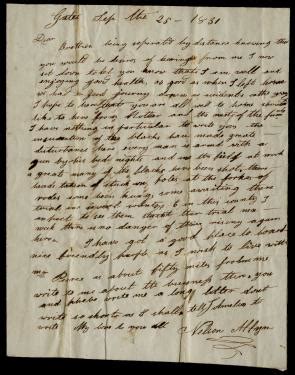 Gates Sep the 25 - 1831
Dear
Brother being separated by distance knowing that
you would be desirous of hearing from me I now
set down to let you know that I am well and
enjoying good health as good as when I left home
we had a good journey down no accidents
I hope to that you are all well to home should
like to hear from Mother and the most of the family
I have nothing in particular to write you the
insurrection of the blacks have made great
disturbance here every man is armed with a
gun by his bed nights and in the field at work
a great many of the blacks have been shot there
heads taken off stuck on poles at the forkes of
rodes some been hung, some awaiting there
trial in several countys, 6 in this county I
expect to see them there trial no
there is no danger of there rising again
here I have got a good place to board
nice friendly folks as I wish to live with
me Pierce is about fifty miles from me
write to me about the business there, you
and Phebe write me a long letter dont
write so short as I shall, tell Amelia to
write My love to you all
Nelson Allyn